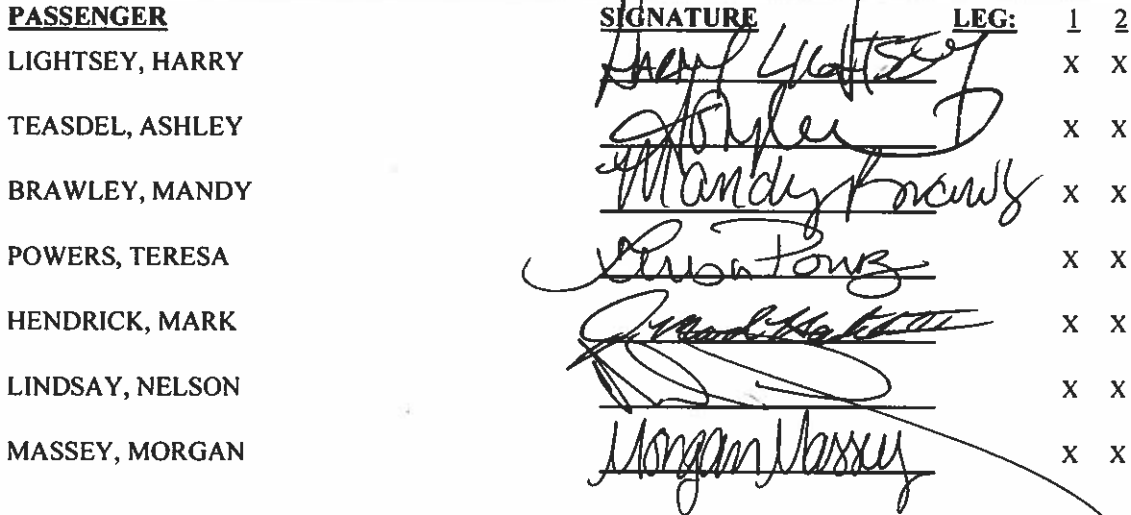 PASSENGER SIGNATURE LEG: 1 2
LIGHTSEY, HARRY Harry Lightsey X X
TEASDEL, ASHLEY X X
BRAWLEY, MANDY Mandy Brawly X X
POWERS, TERESA Teresa Powers X X
HENDRICK, MARK X X
LINDSAY, NELSON X X
MASSEY, MORGAN Morgan Massey X X